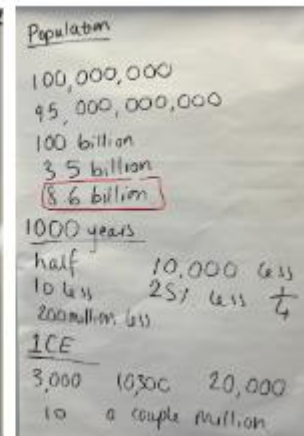 Population
100,000,000
95,000,000,000
100 billion
3.5 billion
8.6 billion
1000 years
half 10,000 less
10 less 25% less 1/4
200 million less
1CE
3,000 10,300 20,000
10 a couple million